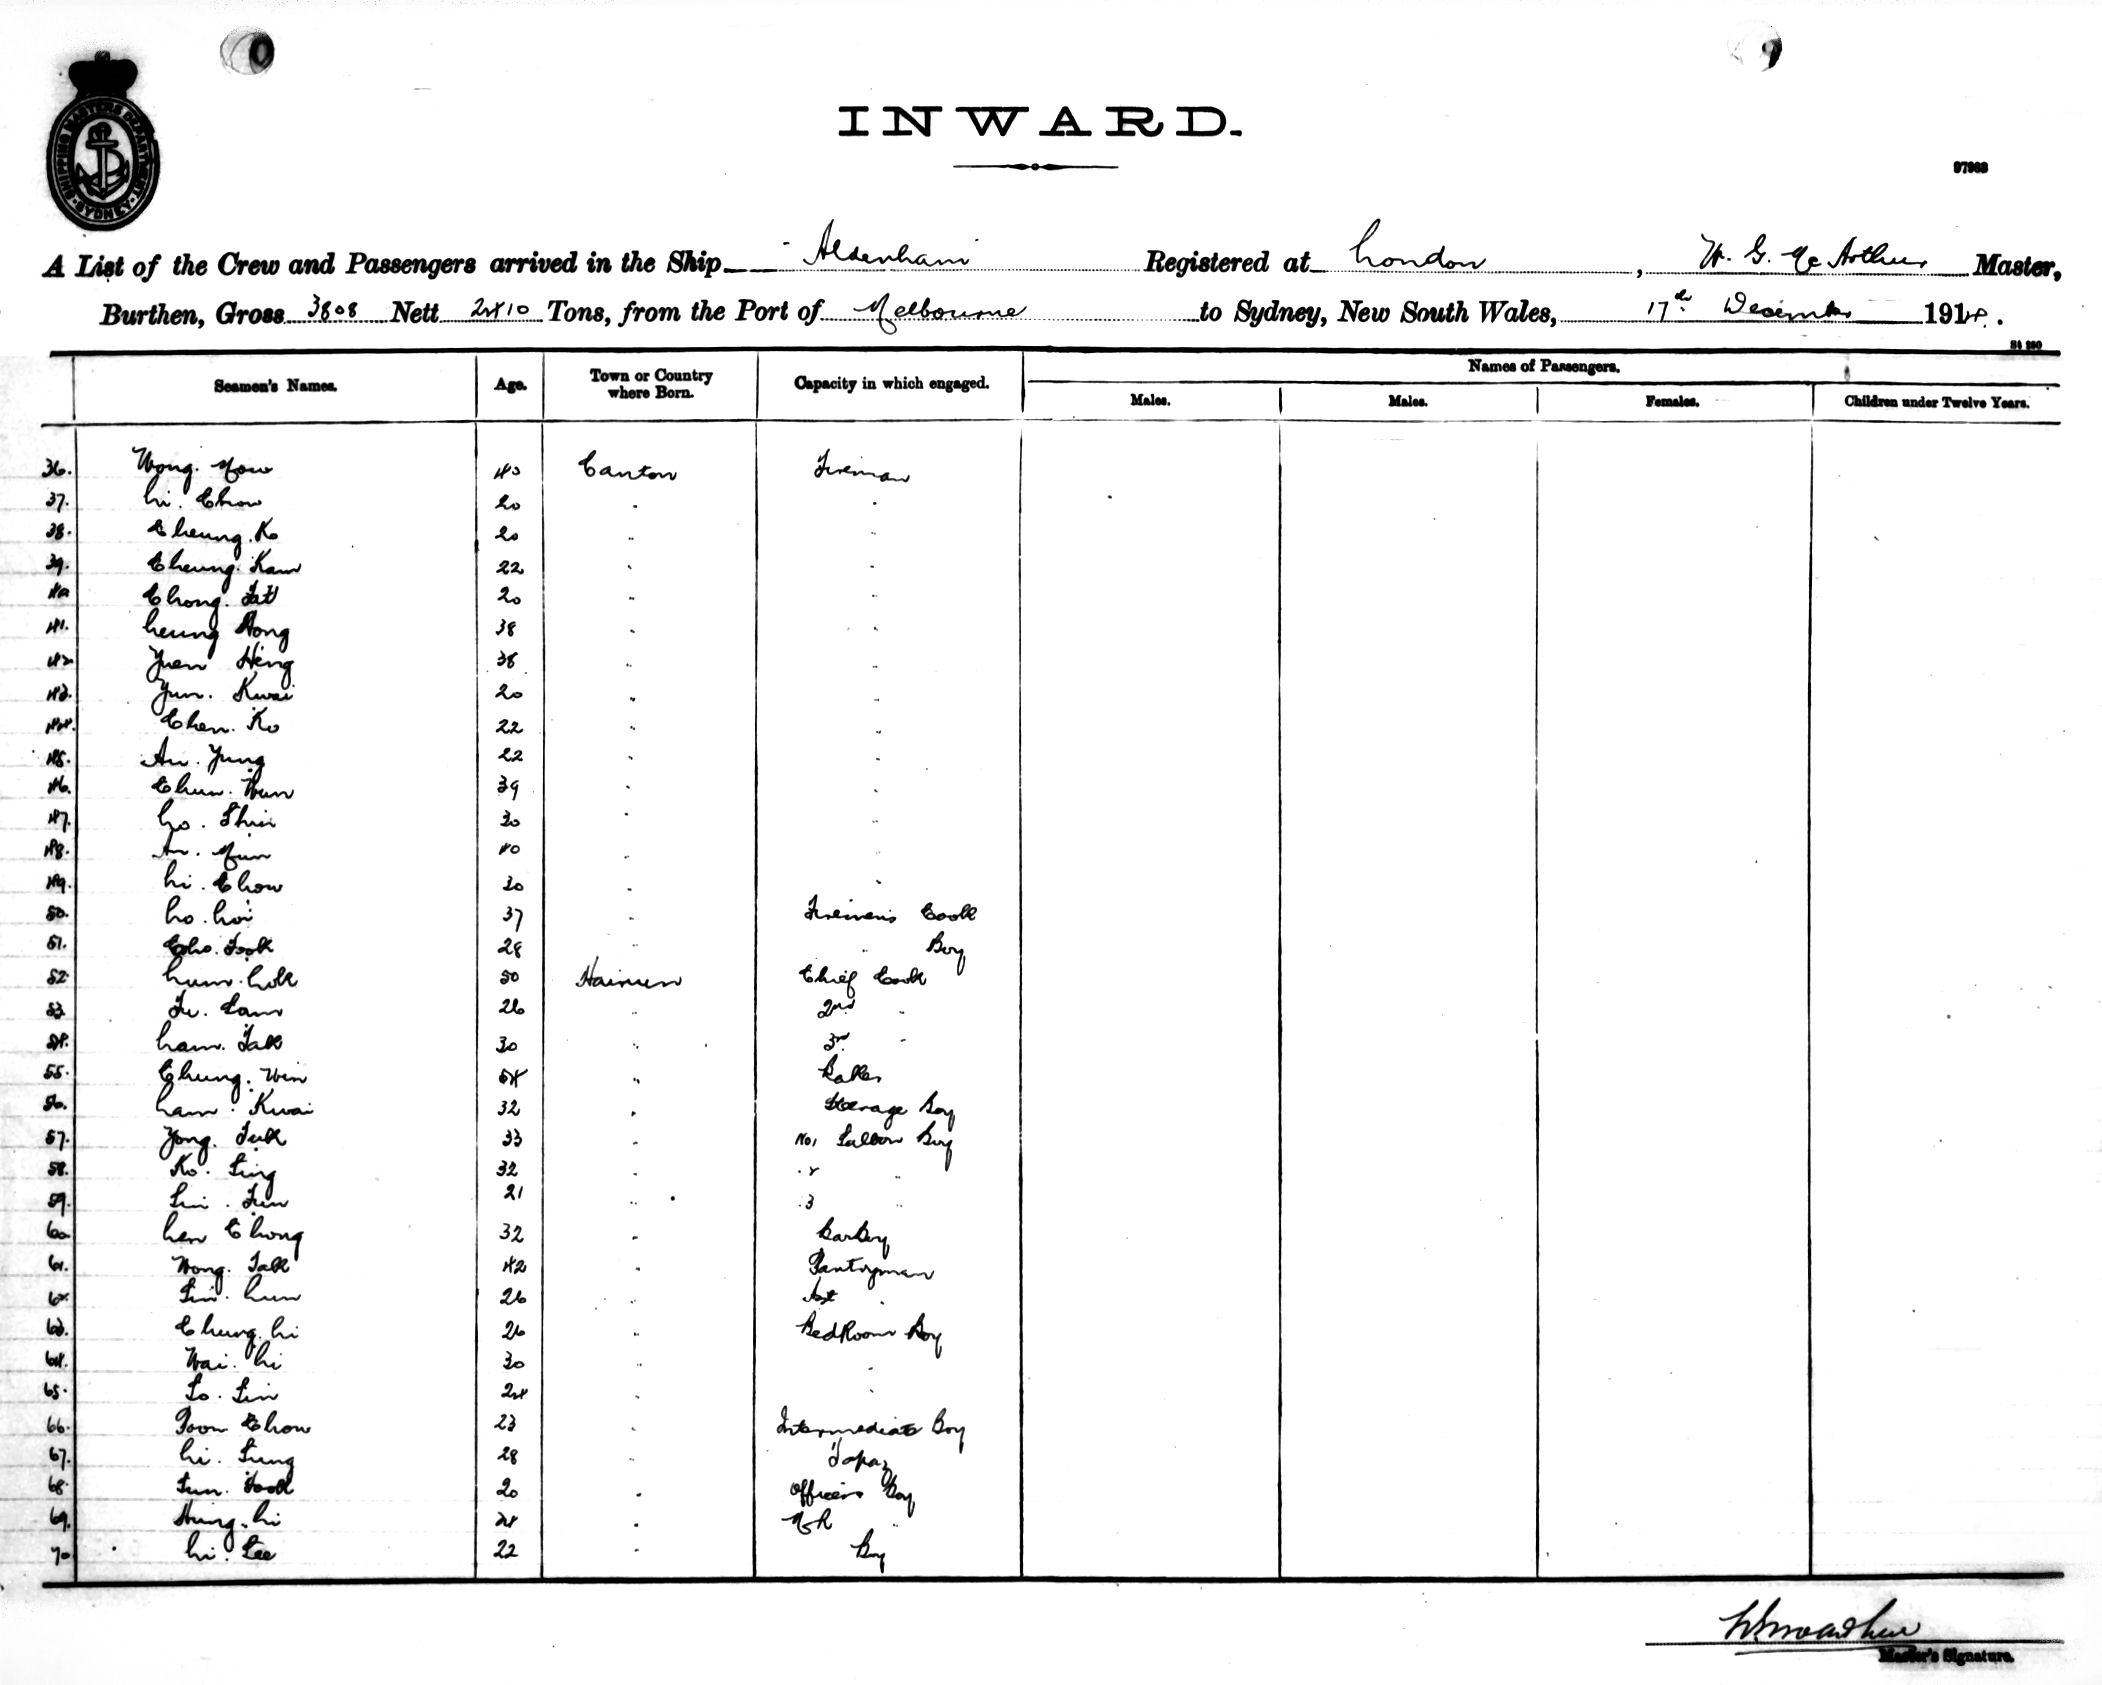 SHIPPING MASTERS DEPARTMENT SYDNEY
INWARD.
97963
A List of the Crew and Passengers arrived in the Ship Aldenham Registered at London, W. G. McArthur Master,
Burthen, Gross 3808 Nett 2410 Tons, from the Port of Melbourne to Sydney, New South Wales, 17th December 1914.
Seamen's Names. Age. Town or Country where Born. Capacity in which engaged. Names of Passengers.
Males. Males. Females. Children under Twelve Years.
36. Wong. Mow 40 Canton Fireman
37. Li. Chow 20 " "
38. Cheung. Ko 20 " "
39. Cheung. Kam 22 " "
40 Chong. Fat 20 " "
41. Leung Hong 38 " "
42 Yuen Hing 38 " "
43. Yun. Kwai 20 " "
44. Chen. Ko 22 " "
45. Au. Yung 22 " "
46. Chun. Wun 39 " "
47. Lo. Shui 30 " "
48. Au. Mun 40 " "
49. Li. Chow 30 " "
50. Lo. Loi 37 " Firemen's Cook
51. Cho. Fook 28 " " Boy
52. Lum. Lok 50 Hainan Chief Cook
53. Fu. Sam 26 " 2nd "
54. Lam. Fak 30 " 3rd "
55. Chung. Win 54 " Baker
56. Lam. Kwai 32 " Steerage Boy
57. Yong. Fuk 33 " No. 1 Saloon Boy
58. Ko. Sing 32 " " 2 "
59. Sui. Fun 21 " " 3 "
60 Len Chong 32 " Barkeep
61. Wong. Fak 42 " Pantryman
62. Sin. Lun 26 " Ast "
63. Chung. Li 26 " BedRoom Boy
64. Wai. Li 30 " "
65. So. Sin 24 " "
66. Poon Chow 23 " Intermediate Boy
67. Li. Sung 28 " Topaz
68. Sun. Fook 20 " Officers Boy
69. Hung. Li 24 "
70 Li. See 22 " Boy
Master's Signature.